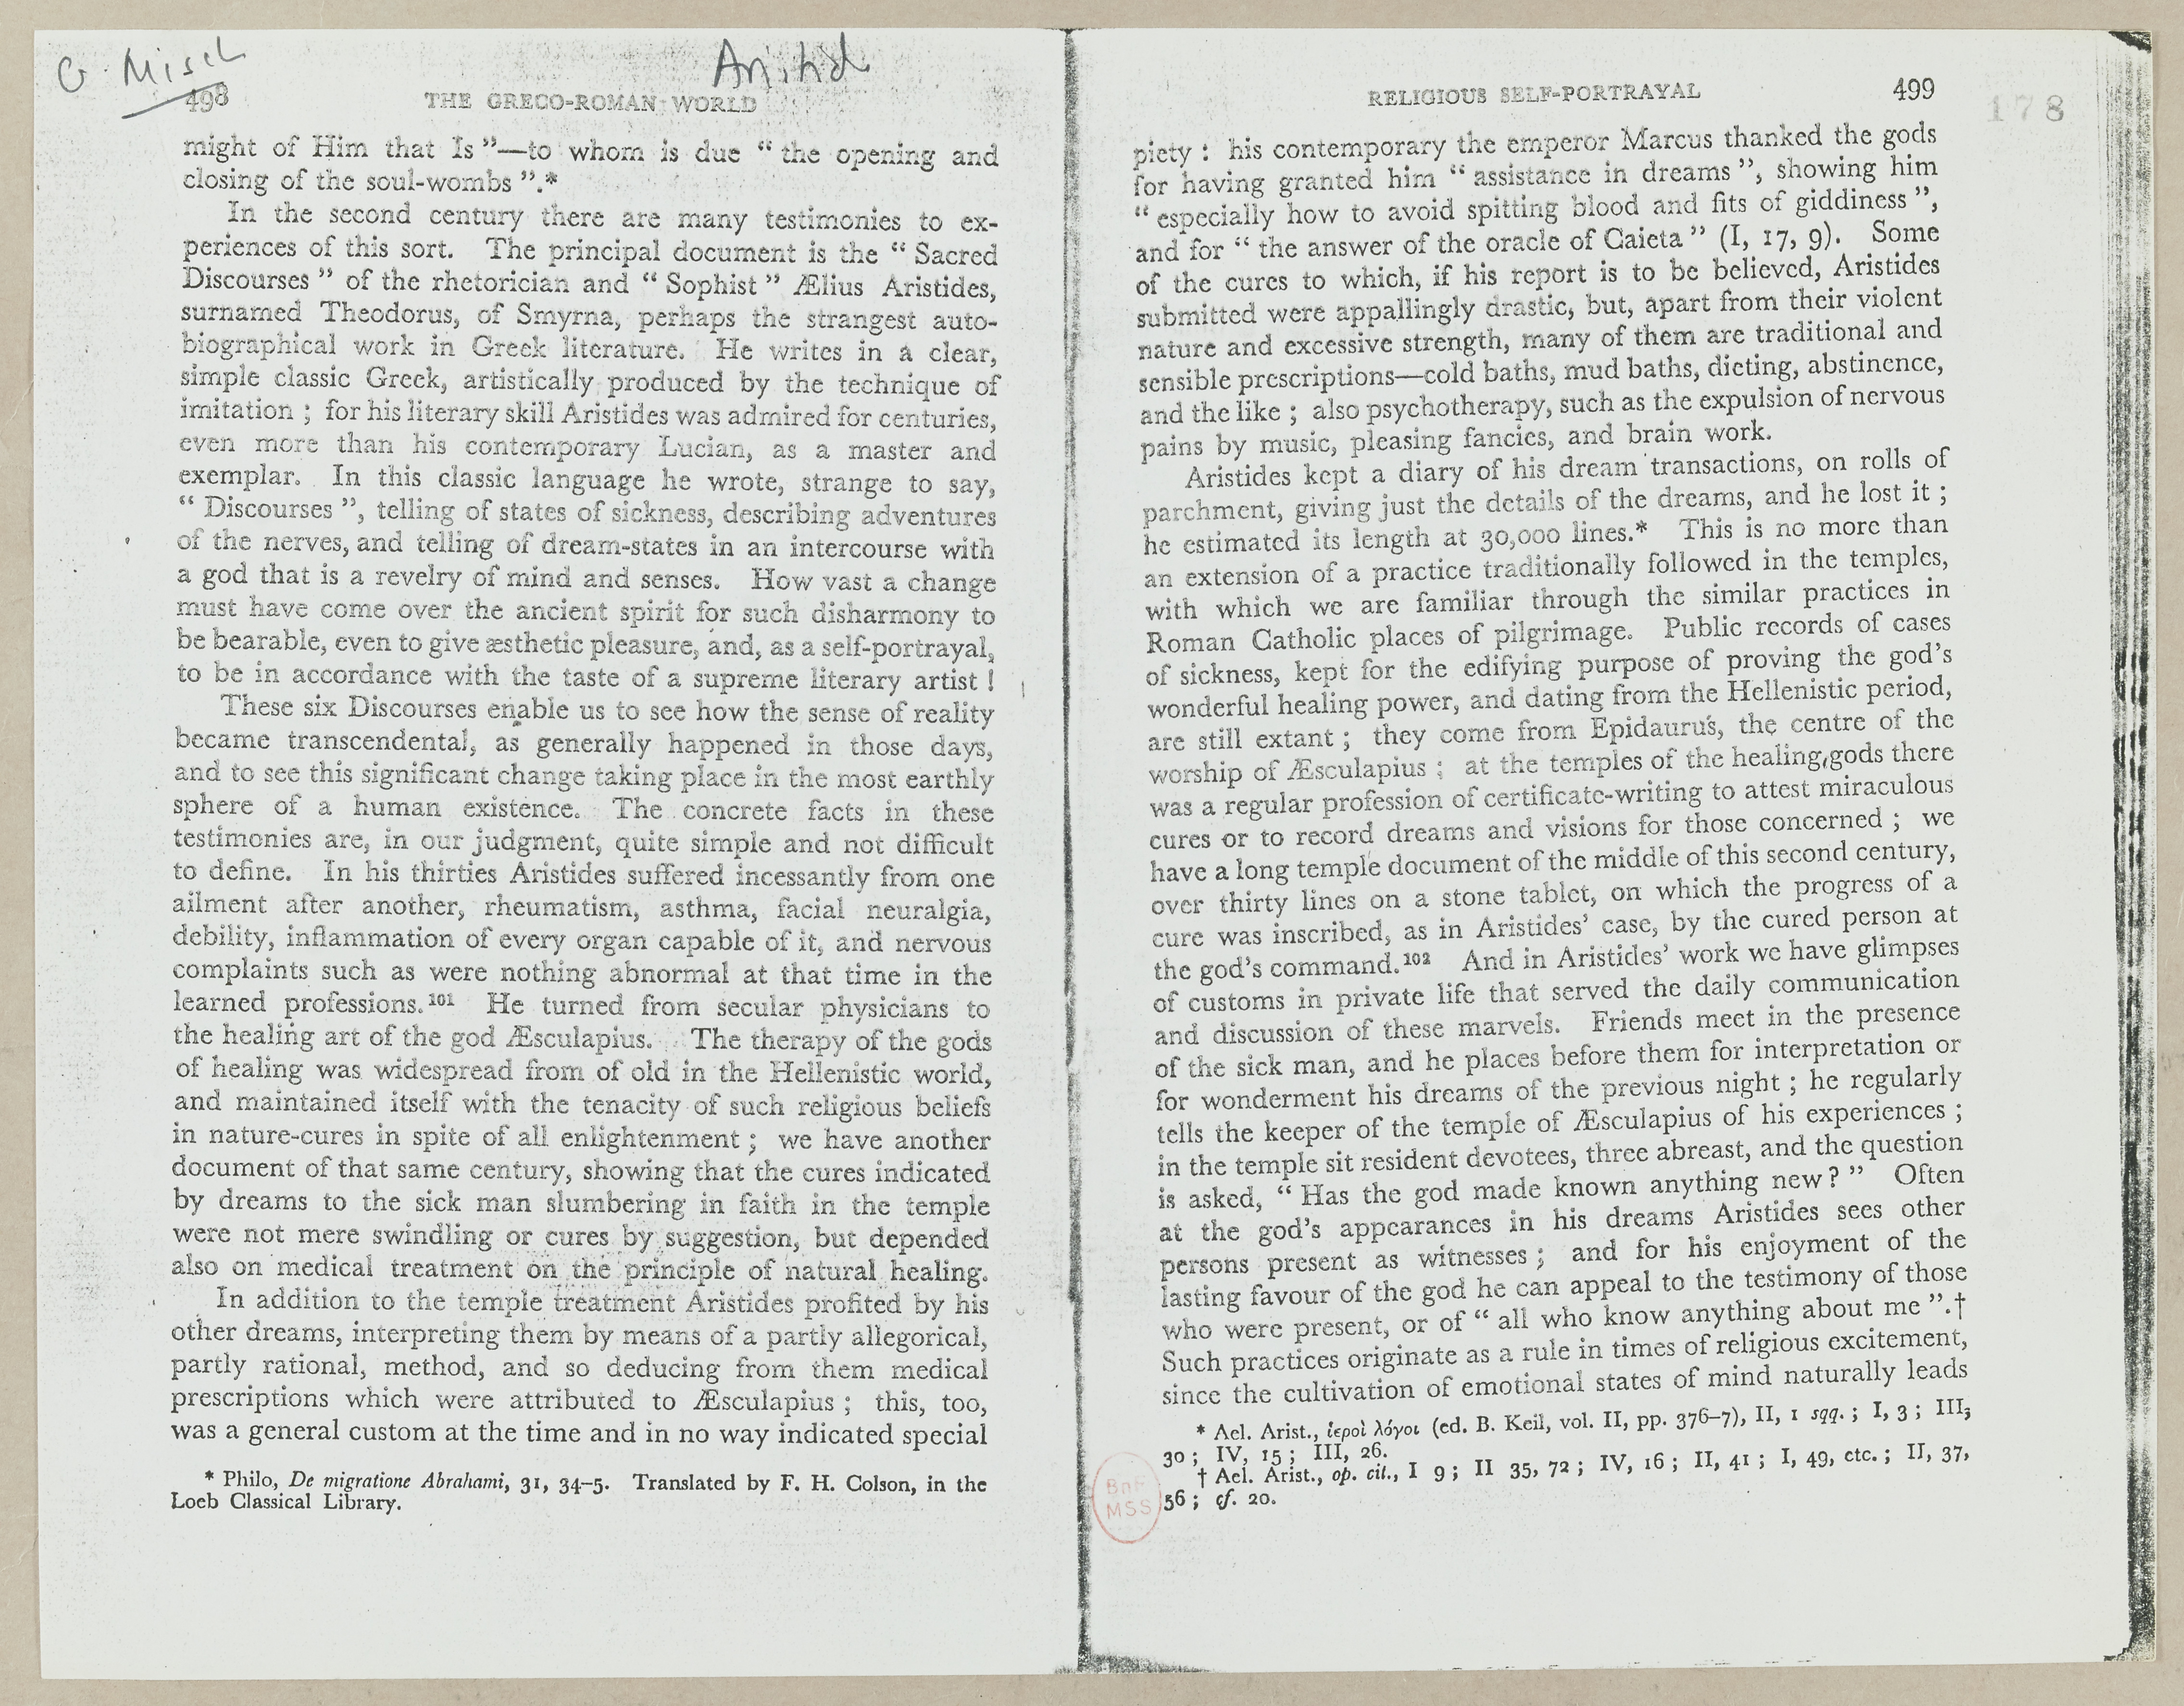 G. Misch
Aristid
498
THE GRECO-ROMAN WORLD
might of Him that Is”—to whom is due “the opening and
closing of the soul-wombs”.*
In the second century there are many testimonies to ex-
periences of this sort. The principal document is the “Sacred
Discourses” of the rhetorician and “Sophist” Ælius Aristides,
surnamed Theodorus, of Smyrna, perhaps the strangest auto-
biographical work in Greek literature. He writes in a clear,
simple classic Greek, artistically produced by the technique of
imitation; for his literary skill Aristides was admired for centuries,
even more than his contemporary Lucian, as a master and
exemplar. In this classic language he wrote, strange to say,
“Discourses”, telling of states of sickness, describing adventures
of the nerves, and telling of dream-states in an intercourse with
a god that is a revelry of mind and senses. How vast a change
must have come over the ancient spirit for such disharmony to
be bearable, even to give æsthetic pleasure, and, as a self-portrayal,
to be in accordance with the taste of a supreme literary artist!
These six Discourses enable us to see how the sense of reality
became transcendental, as generally happened in those days,
and to see this significant change taking place in the most earthly
sphere of a human existence. The concrete facts in these
testimonies are, in our judgment, quite simple and not difficult
to define. In his thirties Aristides suffered incessantly from one
ailment after another, rheumatism, asthma, facial neuralgia,
debility, inflammation of every organ capable of it, and nervous
complaints such as were nothing abnormal at that time in the
learned professions.¹⁰¹ He turned from secular physicians to
the healing art of the god Æsculapius. The therapy of the gods
of healing was widespread from of old in the Hellenistic world,
and maintained itself with the tenacity of such religious beliefs
in nature-cures in spite of all enlightenment; we have another
document of that same century, showing that the cures indicated
by dreams to the sick man slumbering in faith in the temple
were not mere swindling or cures by suggestion, but depended
also on medical treatment on the principle of natural healing.
In addition to the temple treatment Aristides profited by his
other dreams, interpreting them by means of a partly allegorical,
partly rational, method, and so deducing from them medical
prescriptions which were attributed to Æsculapius; this, too,
was a general custom at the time and in no way indicated special
* Philo, De migratione Abrahami, 31, 34–5. Translated by F. H. Colson, in the
Loeb Classical Library.
RELIGIOUS SELF-PORTRAYAL
499
178
piety: his contemporary the emperor Marcus thanked the gods
for having granted him “assistance in dreams”, showing him
“especially how to avoid spitting blood and fits of giddiness”,
and for “the answer of the oracle of Caieta” (I, 17, 9). Some
of the cures to which, if his report is to be believed, Aristides
submitted were appallingly drastic, but, apart from their violent
nature and excessive strength, many of them are traditional and
sensible prescriptions—cold baths, mud baths, dieting, abstinence,
and the like; also psychotherapy, such as the expulsion of nervous
pains by music, pleasing fancies, and brain work.
Aristides kept a diary of his dream transactions, on rolls of
parchment, giving just the details of the dreams, and he lost it;
he estimated its length at 30,000 lines.* This is no more than
an extension of a practice traditionally followed in the temples,
with which we are familiar through the similar practices in
Roman Catholic places of pilgrimage. Public records of cases
of sickness, kept for the edifying purpose of proving the god’s
wonderful healing power, and dating from the Hellenistic period,
are still extant; they come from Epidaurus, the centre of the
worship of Æsculapius; at the temples of the healing gods there
was a regular profession of certificate-writing to attest miraculous
cures or to record dreams and visions for those concerned; we
have a long temple document of the middle of this second century,
over thirty lines on a stone tablet, on which the progress of a
cure was inscribed, as in Aristides’ case, by the cured person at
the god’s command.¹⁰² And in Aristides’ work we have glimpses
of customs in private life that served the daily communication
and discussion of these marvels. Friends meet in the presence
of the sick man, and he places before them for interpretation or
for wonderment his dreams of the previous night; he regularly
tells the keeper of the temple of Æsculapius of his experiences;
in the temple sit resident devotees, three abreast, and the question
is asked, “Has the god made known anything new?” Often
at the god’s appearances in his dreams Aristides sees other
persons present as witnesses; and for his enjoyment of the
lasting favour of the god he can appeal to the testimony of those
who were present, or of “all who know anything about me”.†
Such practices originate as a rule in times of religious excitement,
since the cultivation of emotional states of mind naturally leads
* Ael. Arist., ἱεροὶ λόγοι (ed. B. Keil, vol. II, pp. 376–7), II, 1 sqq.; I, 3; III,
30; IV, 15; III, 26.
† Ael. Arist., op. cit., I 9; II 35, 72; IV, 16; II, 41; I, 49, etc.; II, 37,
56; cf. 20.
BnF
MSS